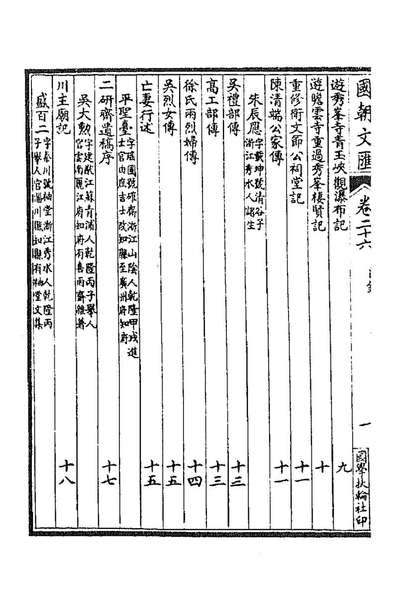 國朝文匯
卷二十六
目錄
一
國學扶輪社印
遊秀峯寺青玉峽觀瀑布記 九
遊瞻雲寺重過秀峯棲賢記 十
重修衛文節公祠堂記 十一
陳清端公家傳 十一
朱辰應 字載坤號清谷子浙江秀水人諸生
吳禮部傳 十三
高工部傳 十三
徐氏兩烈婦傳 十四
吳烈女傳 十五
亡妻行述 十五
平聖臺 字瑶圃號確齋浙江山陰人乾隆甲戌進士官由庶吉士改知縣至廣州府知府
二研齋遺稿序 十七
吳大勳 字建猷江蘇青浦人乾隆丙子舉人官雲南麗江府知府有
川主廟記 十八
盛百二 字秦川號柚堂浙江秀水人乾隆丙子舉人官淄川縣知縣有柚堂文集